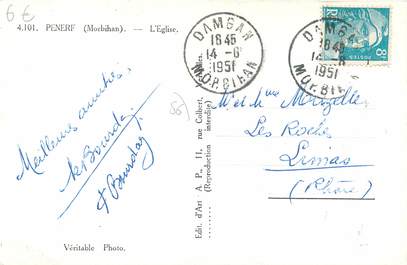 6€
4.101. PENERF (Morbihan). — L'Eglise.
Meilleures amitiés
Véritable Photo.
Edit. d'Art A. P., 11, rue Colbert,
(Reproduction interdite)
DAMGAN
18 45
14 - 6
1951
MORBIHAN
DAMGAN
18 45
14 - 6
1951
MORBIHAN
8F
POSTES
M et Me
Les Roches
Limas
(Rhône)